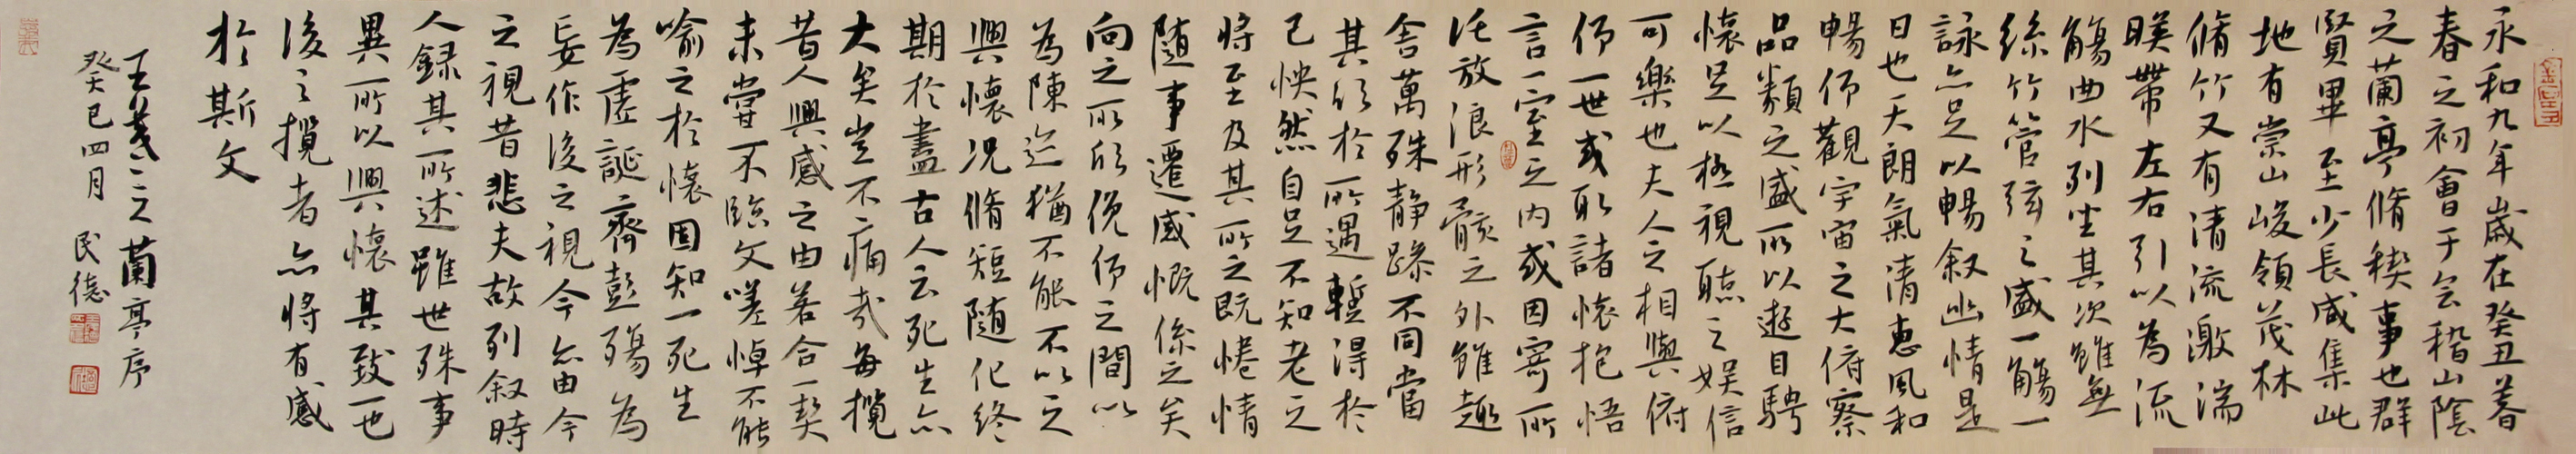 永和九年歲在癸丑暮
春之初會于會稽山陰
之蘭亭脩稧事也群
賢畢至少長咸集此
地有崇山峻領茂林
脩竹又有清流激湍
暎帶左右引以為流
觴曲水列坐其次雖無
絲竹管弦之盛一觴一
詠亦足以暢叙幽情是
日也天朗氣清惠風和
暢仰觀宇宙之大俯察
品類之盛所以遊目騁
懷足以極視聽之娛信
可樂也夫人之相與俯
仰一世或取諸懷抱悟
言一室之内或因寄所
託放浪形骸之外雖趣
舍萬殊静躁不同當
其欣於所遇暫得於
己怏然自足不知老之
將至及其所之既惓情
隨事遷感慨係之矣
向之所欣俛仰之間以
為陳迹猶不能不以之
興懷况脩短隨化終
期於盡古人云死生亦
大矣豈不痛哉每攬
昔人興感之由若合一契
未嘗不臨文嗟悼不能
喻之於懷固知一死生
為虛誕齊彭殤為
妄作後之視今亦由今
之視昔悲夫故列叙時
人録其所述雖世殊事
異所以興懷其致一也
後之攬者亦將有感
於斯文
王羲之蘭亭序
癸巳四月 民德